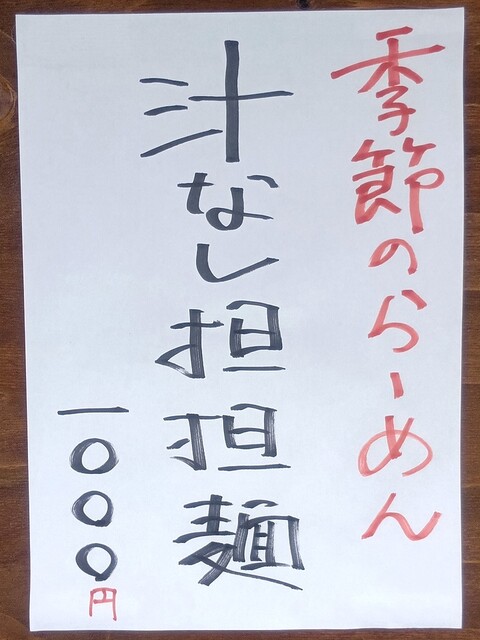 季節のらーめん
汁なし担担麺
一〇〇〇円